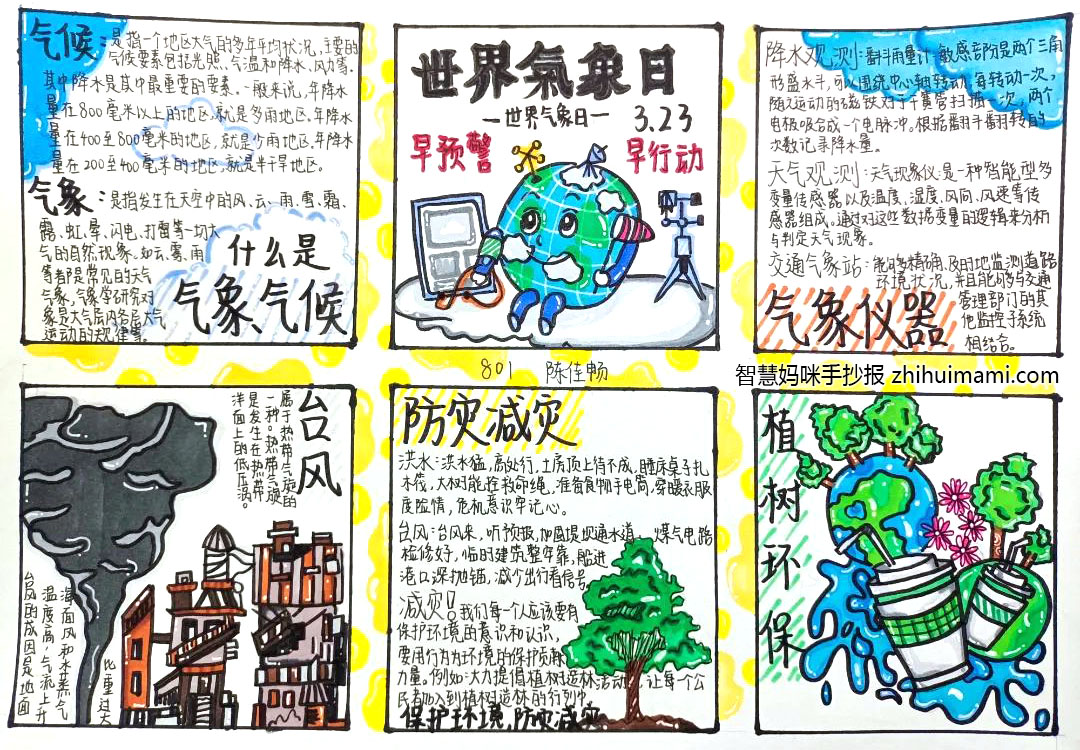 气候：是指一个地区大气的多年平均状况，主要的
气候要素包括光照、气温和降水、风力等.
其中降水是其中最重要的要素。一般来说，年降水
量在800毫米以上的地区，就是多雨地区，年降水
量在400至800毫米的地区，就是少雨地区，年降水
量在200至400毫米的地区，就是半干旱地区。
气象：是指发生在天空中的风、云、雨、雪、霜、
露、虹、晕、闪电、打雷等一切大
气的自然现象。如云、雾、雨
等都是常见的天气
气象，气象学研究对
象是大气层内各层大气
运动的规律等。
什么是
气象、气候
世界氣象日
—世界气象日—
3.23
早预警
早行动
降水观测：翻斗雨量计 敏感部分是两个三角
形盛水斗，可以围绕中心轴转动，每转动一次，
随之运动的磁铁对干簧管扫描一次，两个
电极吸合成一个电脉冲。根据翻斗翻转的
次数记录降水量。
天气观测：天气现象仪：是一种智能型多
变量传感器以及温度、湿度、风向、风速等传
感器组成。通过对这些数据变量的逻辑来分析
与判定天气现象。
交通气象站：能够精确、及时地监测道路
环境状况，并且能够与交通
管理部门的其
他监控子系统
相结合。
气象仪器
801 陈佳畅
智慧妈咪手抄报 zhihuimami.com
台风
属于热带气旋的
一种。热带气旋
是发生在热带
洋面上的低压涡。
台风的成因是地面
温度高，气流上升
海面风和水蒸气
比重过大
防灾减灾
洪水：洪水猛，高处行，土房顶上待不成，睡床桌子扎
木筏，大树能拴救命绳，准备食物手电筒，穿暖衣服
度险情，危机意识牢记心。
台风：台风来，听预报，加固堤坝通水道，煤气电路
检修好，临时建筑整牢靠，船进
港口深抛锚，减少出行看信号
减灾！我们每一个人应该要有
保护环境的意识和认识，
要用行为为环境的保护贡献
力量。例如：大力提倡植树造林活动，让每一个公
民者加入到植树造林的行列中。
保护环境，防灾减灾
植树环保